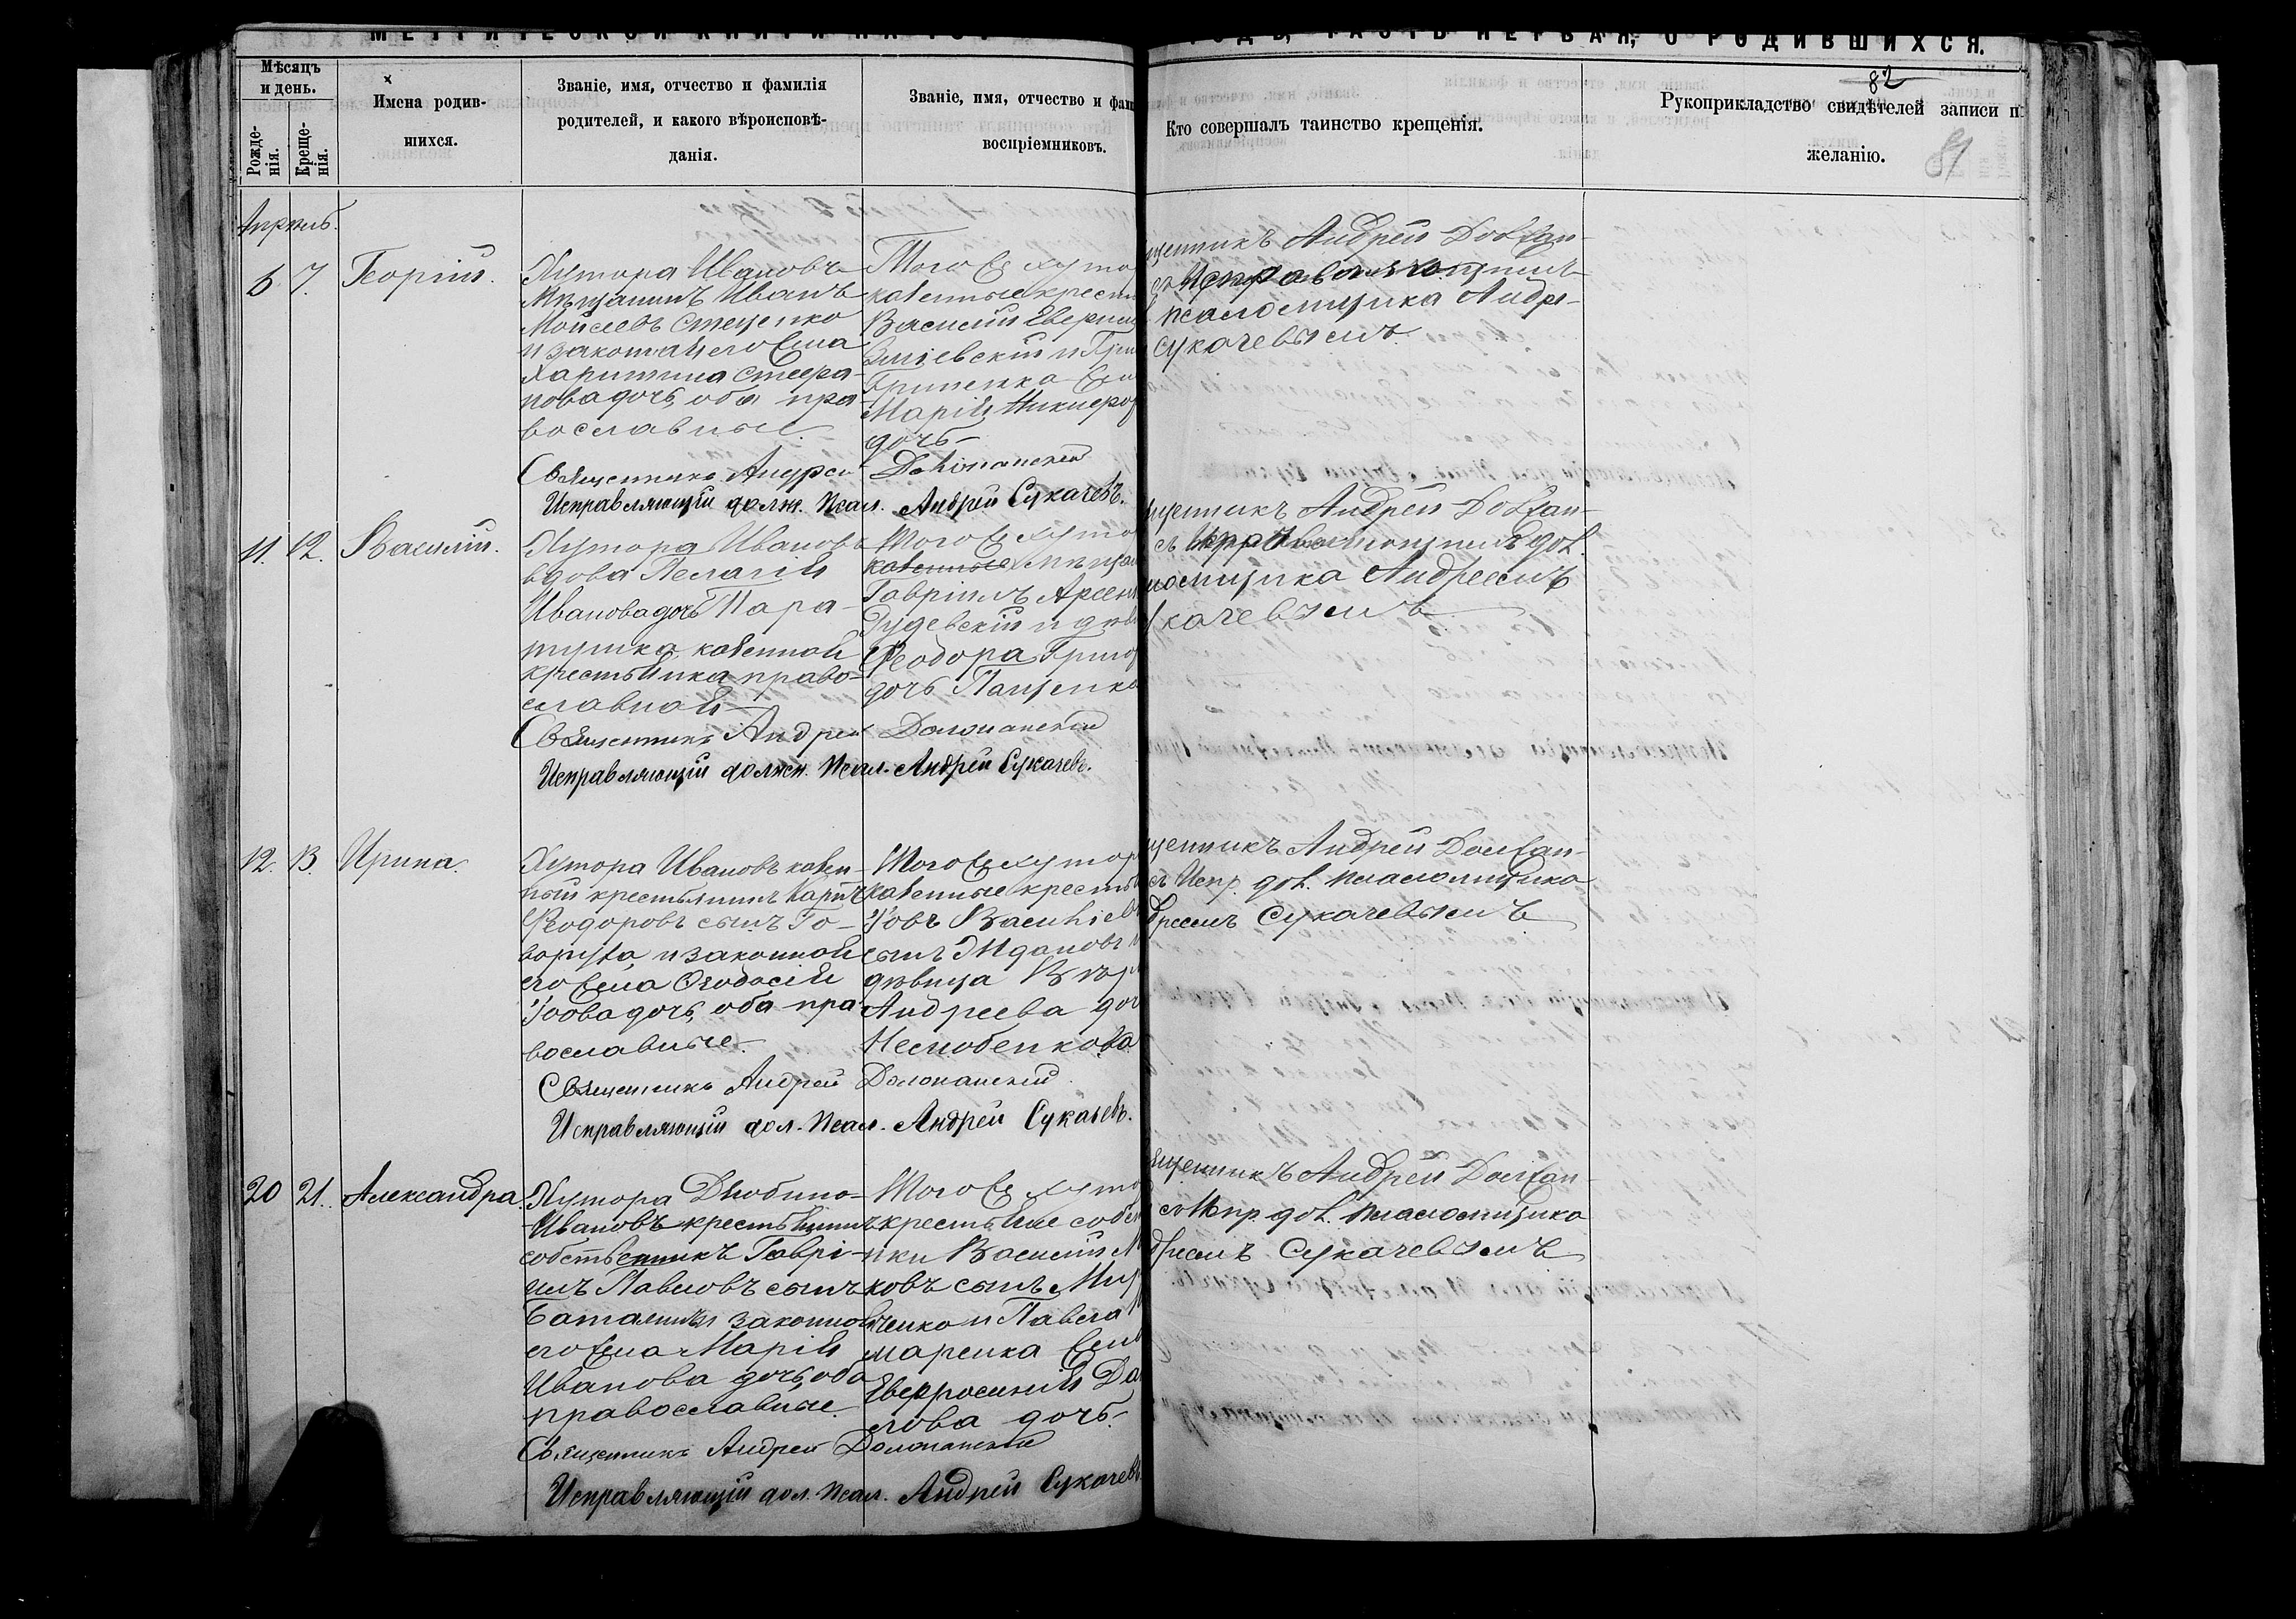 ГОДЪ, ЧАСТЬ ПЕРВАЯ, О РОДИВШИХСЯ.
Мѣсяцъ
и день.
Рожде-
нія.
Креще-
нія.
Имена родив-
шихся.
Званіе, имя, отчество и фамилія
родителей, и какого вѣроисповѣ-
данія.
Званіе, имя, отчество и фам
воспріемниковъ.
Кто совершалъ таинство крещенія.
82
Рукоприкладство свидѣтелей записи п
желанію.
81
Апрѣль.
6 7. Георгій.
Хутора Ивановъ
Мѣщанинъ Иванъ
Моисеевъ Стеценко
и законная его жена
Харитина Стефа-
нова дочь, оба пра-
вославные.
Того же хуто
казенные крест
Василій
и
жен
Марія Никифор
дочь
щенникъ Андрей Должан-
псаломщика Андре-
Сукачевымъ.
Священникъ Андрей Должанскій
Исправляющій долж. Псал. Андрей Сукачевъ.
11. 12. Василій.
Хутора Ивановъ
вдова Пелагія
Иванова дочь Пара-
казенная
крестьянка право-
славная
Того же хуто
казенные мѣщан
Гавріилъ Арсен
и дѣв
Феодора Григор
дочь Пащенко
щенникъ Андрей Должан-
съ Исправляющимъ дол.
ломщика Андреемъ
качевымъ
Священникъ Андрей Должанскій
Исправляющій должн. Псал. Андрей Сукачевъ.
12. 13. Ирина.
Хутора Ивановъ казен-
ный крестьянинъ Карпъ
Феодоровъ сынъ Го-
и законная
его жена Феодосія
Іовова дочь, оба пра-
вославные.
Того же хутор
казенные крестья
Іовъ Васильев
сынъ Ждановъ и
дѣвица
Андреева доч
щенникъ Андрей Должан-
съ Испр. дол. псаломщика
дреемъ Сукачевымъ
Священникъ Андрей Должанскій
Исправляющій дол. Псал. Андрей Сукачевъ.
20 21. Александра.
Хутора Любино-
Ивановъ крестьянинъ
собственникъ Гаврі-
илъ Павловъ сынъ
и законная
его жена Марія
Иванова дочь, оба
православные.
Того же хуто
крестьяне собствен
ники Василій М
ковъ сынъ
и Павла
жен
Евфросинія Да
лова дочь.
щенникъ Андрей Должан-
съ Испр. дол. псаломщика
дреемъ Сукачевымъ
Священникъ Андрей Должанскій
Исправляющій дол. Псал. Андрей Сукачевъ